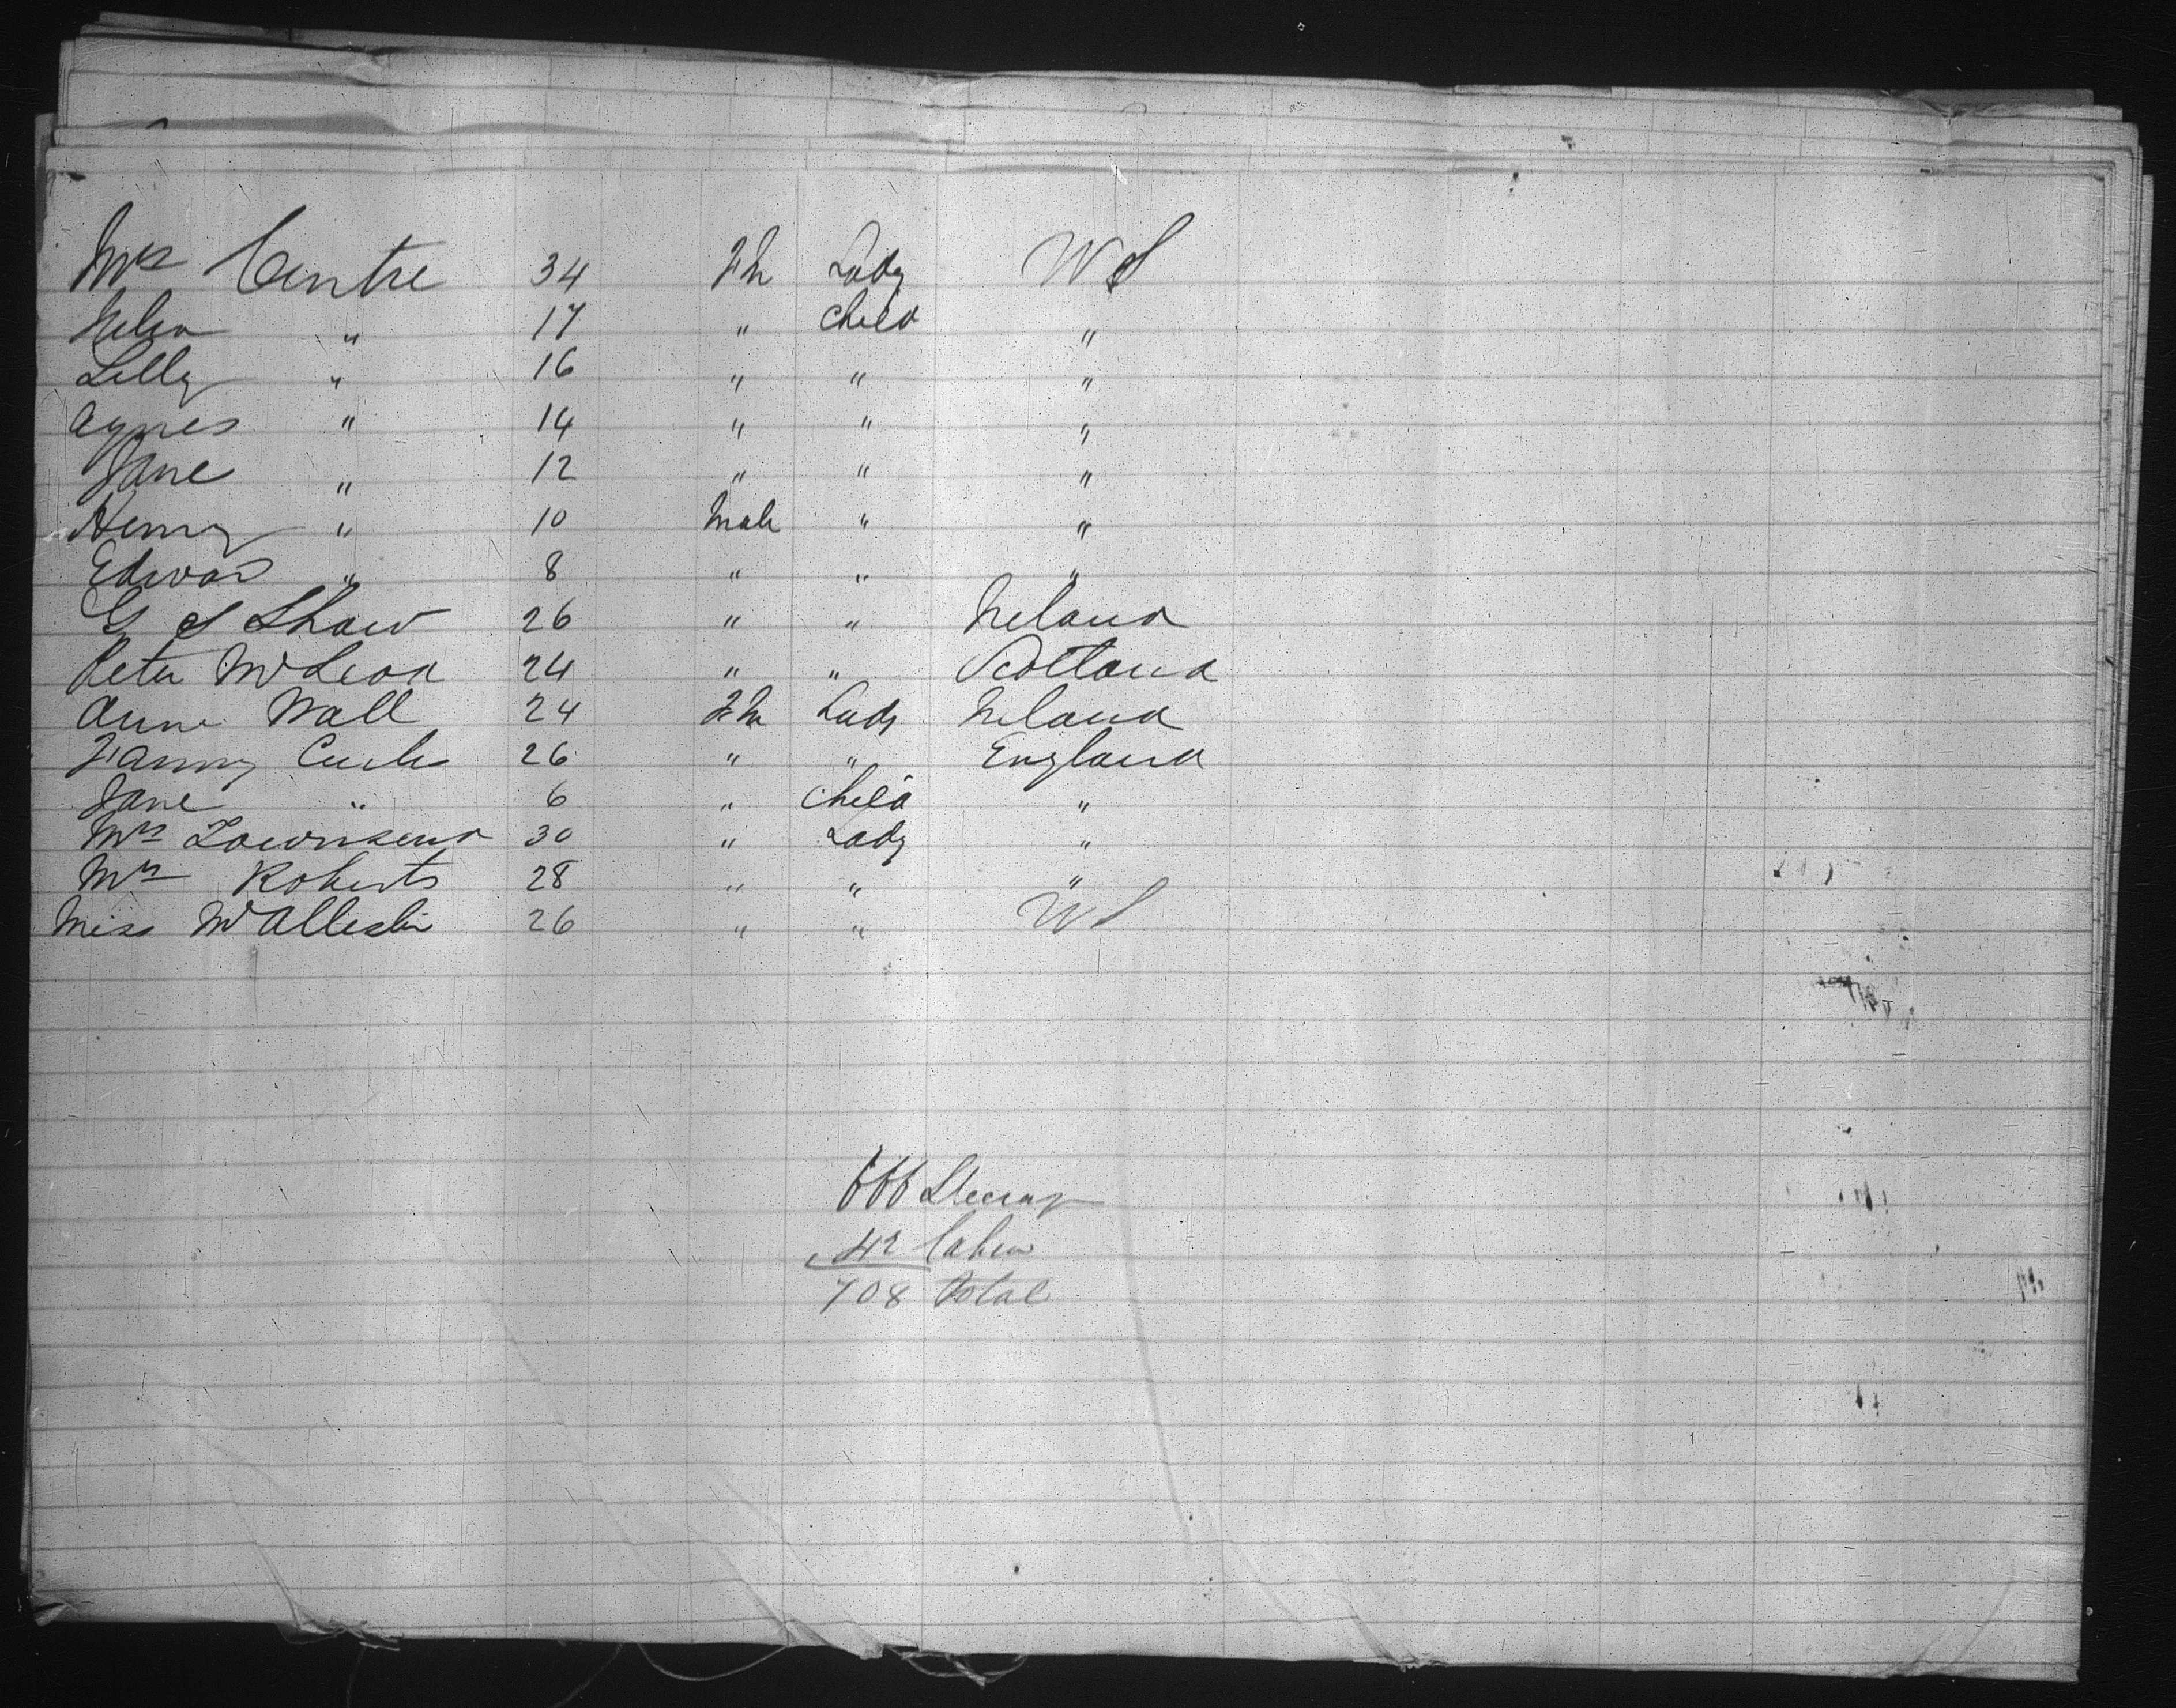 Mrs Centre 34 Fm Lady U S
Helen " 17 " Child "
Lilly " 16 " " "
Agnes " 14 " " "
Jane " 12 " " "
Henry " 10 Male " "
Edward " 8 " " "
G S Shaw 26 " " Ireland
Peter McLeod 24 " " Scotland
Anne Wall 24 Fm Lady Ireland
Fanny 26 " " England
Jane " 6 " Child "
Mrs Townsend 30 " Lady "
Mrs Roberts 28 " " "
Miss 26 " " U S
666 Steerage
42 Cabin
708 Total